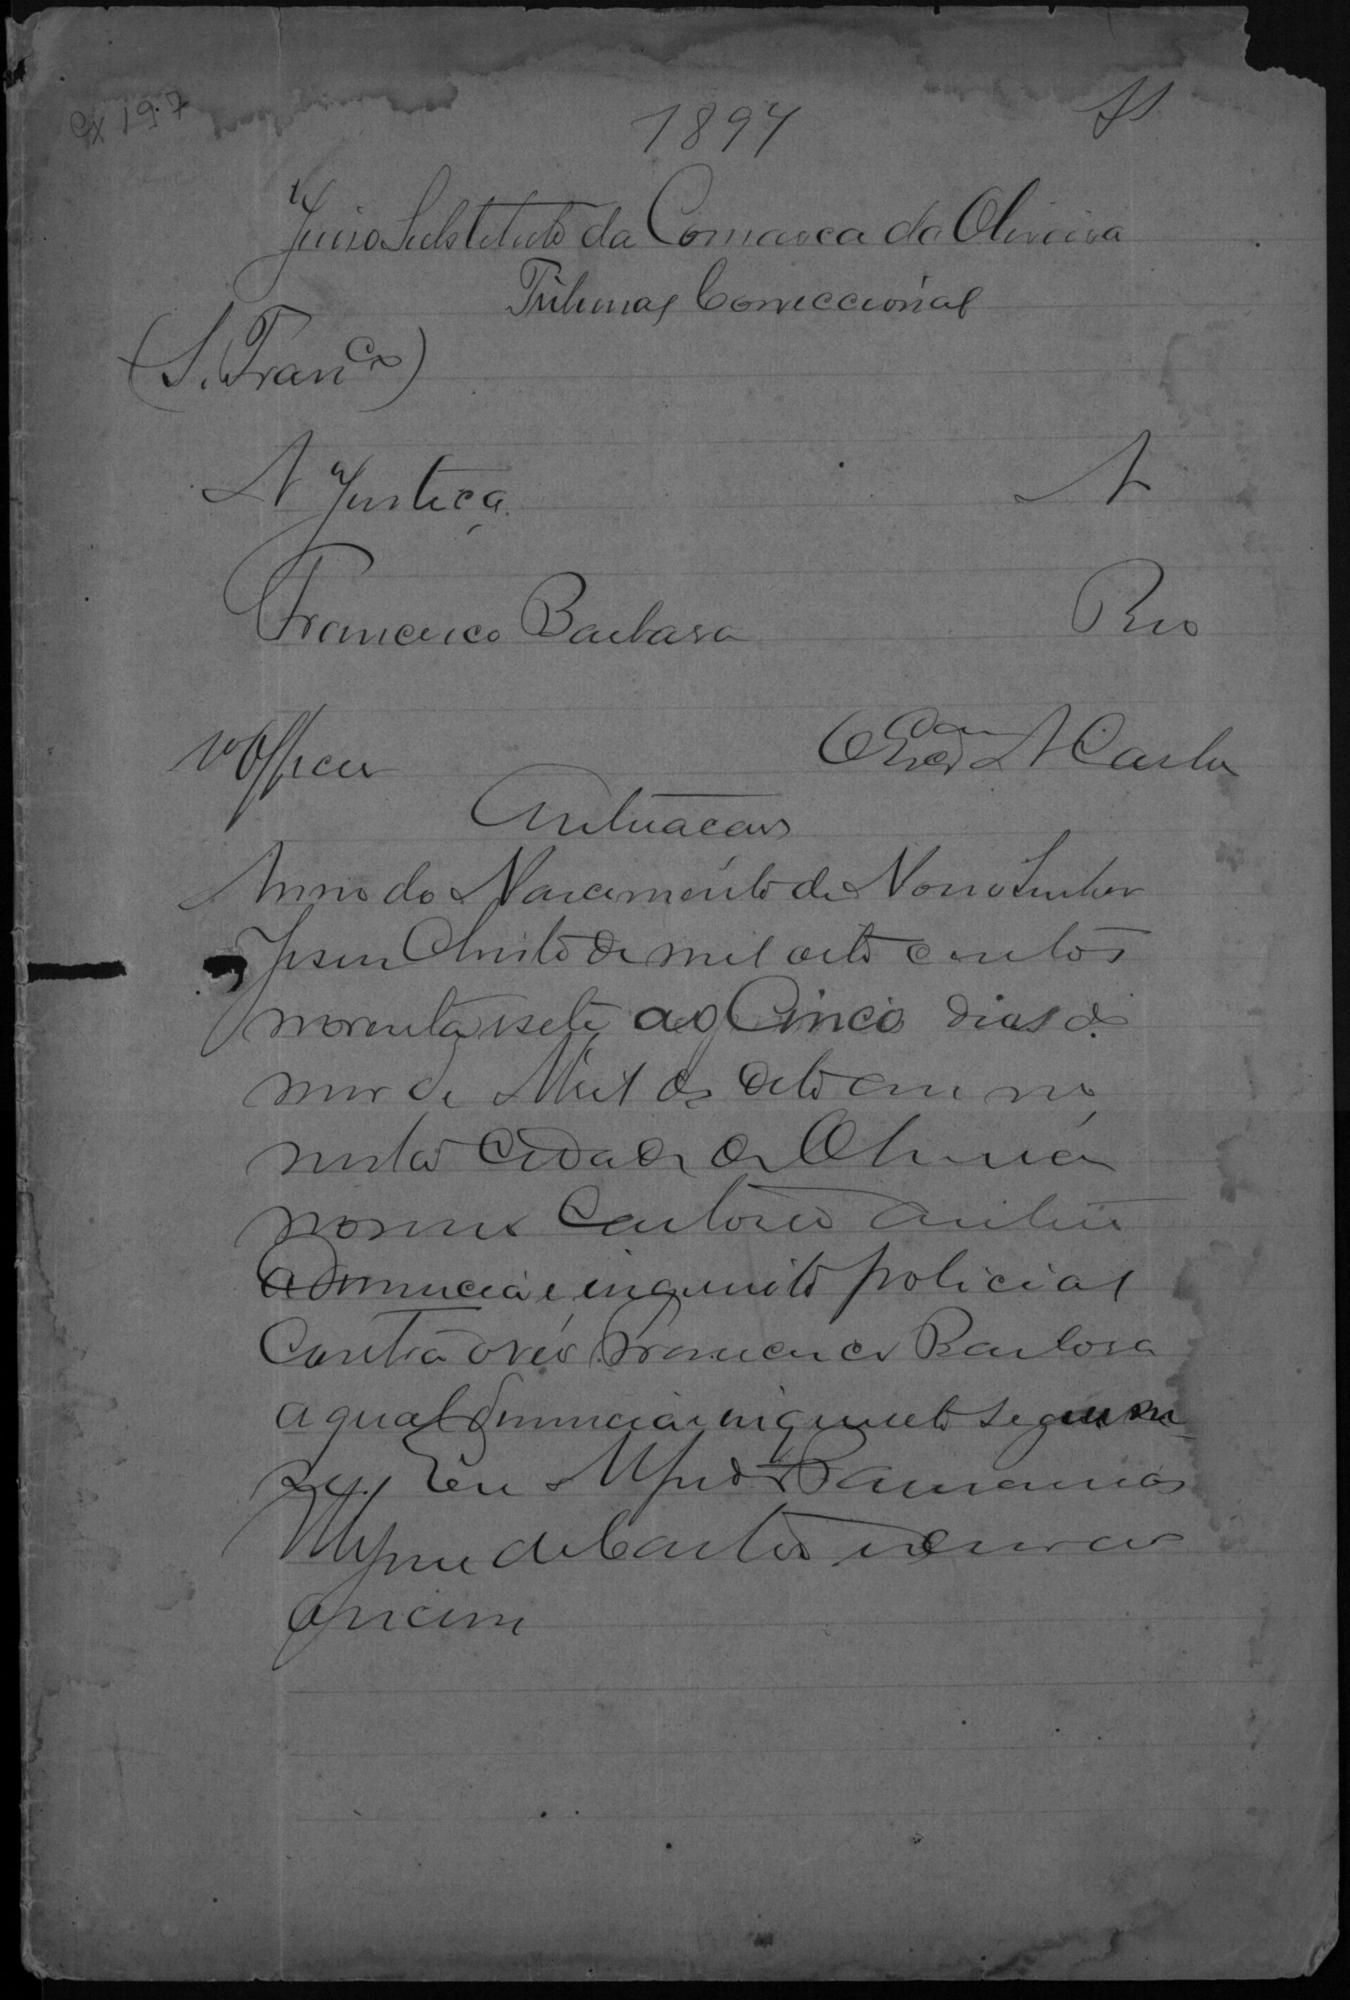 Cx 197
1897
Juizo Substituto da Comarca da Oliveira
Tribunal Correccional
(S. Franco)
A Justiça A
Francisco Barbosa Reo
1º Officio Castro
Autuacão
Anno do Nascimento de Nosso Senhor
Jesus Christo de mil oito centos
noventa e sete aos Cinco dias do
mez de Abril do dito anno
nesta Cidade de Oliveira
no meu Cartorio autuei
a denuncia e inquerito policial
Contra o réo Francisco Barbosa
a qual denuncia e inquerito segue
Eu Alfredo
de Castro